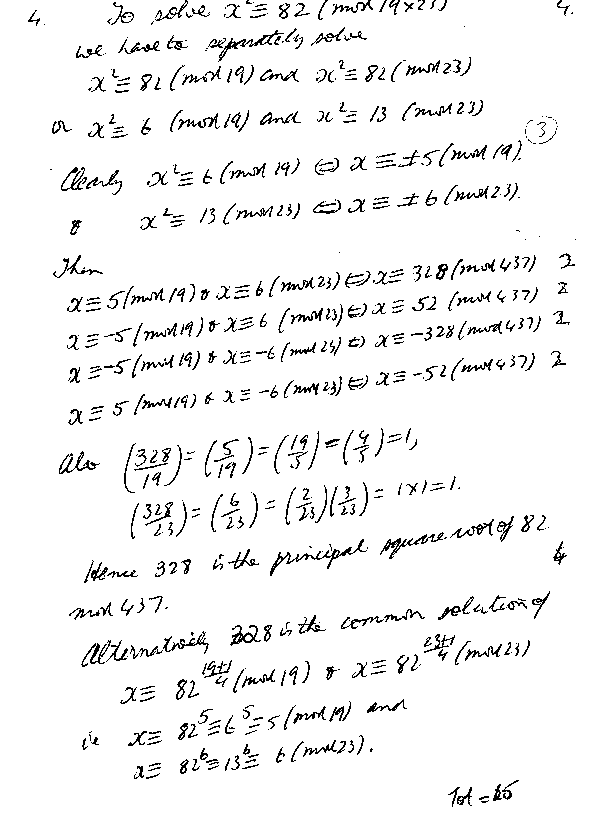 4. To solve x² ≡ 82 (mod 19×23) 4.
we have to separately solve
x² ≡ 82 (mod 19) and x² ≡ 82 (mod 23)
or x² ≡ 6 (mod 19) and x² ≡ 13 (mod 23)
(3)
Clearly x² ≡ 6 (mod 19) ⇔ x ≡ ±5 (mod 19).
& x² ≡ 13 (mod 23) ⇔ x ≡ ±6 (mod 23).
Then
x ≡ 5 (mod 19) & x ≡ 6 (mod 23) ⇔ x ≡ 328 (mod 437) 2
x ≡ -5 (mod 19) & x ≡ 6 (mod 23) ⇔ x ≡ 52 (mod 437) 2
x ≡ -5 (mod 19) & x ≡ -6 (mod 23) ⇔ x ≡ -328 (mod 437) 2
x ≡ 5 (mod 19) & x ≡ -6 (mod 23) ⇔ x ≡ -52 (mod 437) 2
Also (328/19) = (5/19) = (19/5) = (4/5) = 1,
(328/23) = (6/23) = (2/23)(3/23) = 1×1 = 1.
Hence 328 is the principal square root of 82
mod 437. 4
Alternatively 328 is the common solution of
x ≡ 82^((19+1)/4) (mod 19) & x ≡ 82^((23+1)/4) (mod 23)
ie x ≡ 82⁵ ≡ 6⁵ ≡ 5 (mod 19) and
x ≡ 82⁶ ≡ 13⁶ ≡ 6 (mod 23).
Tot =